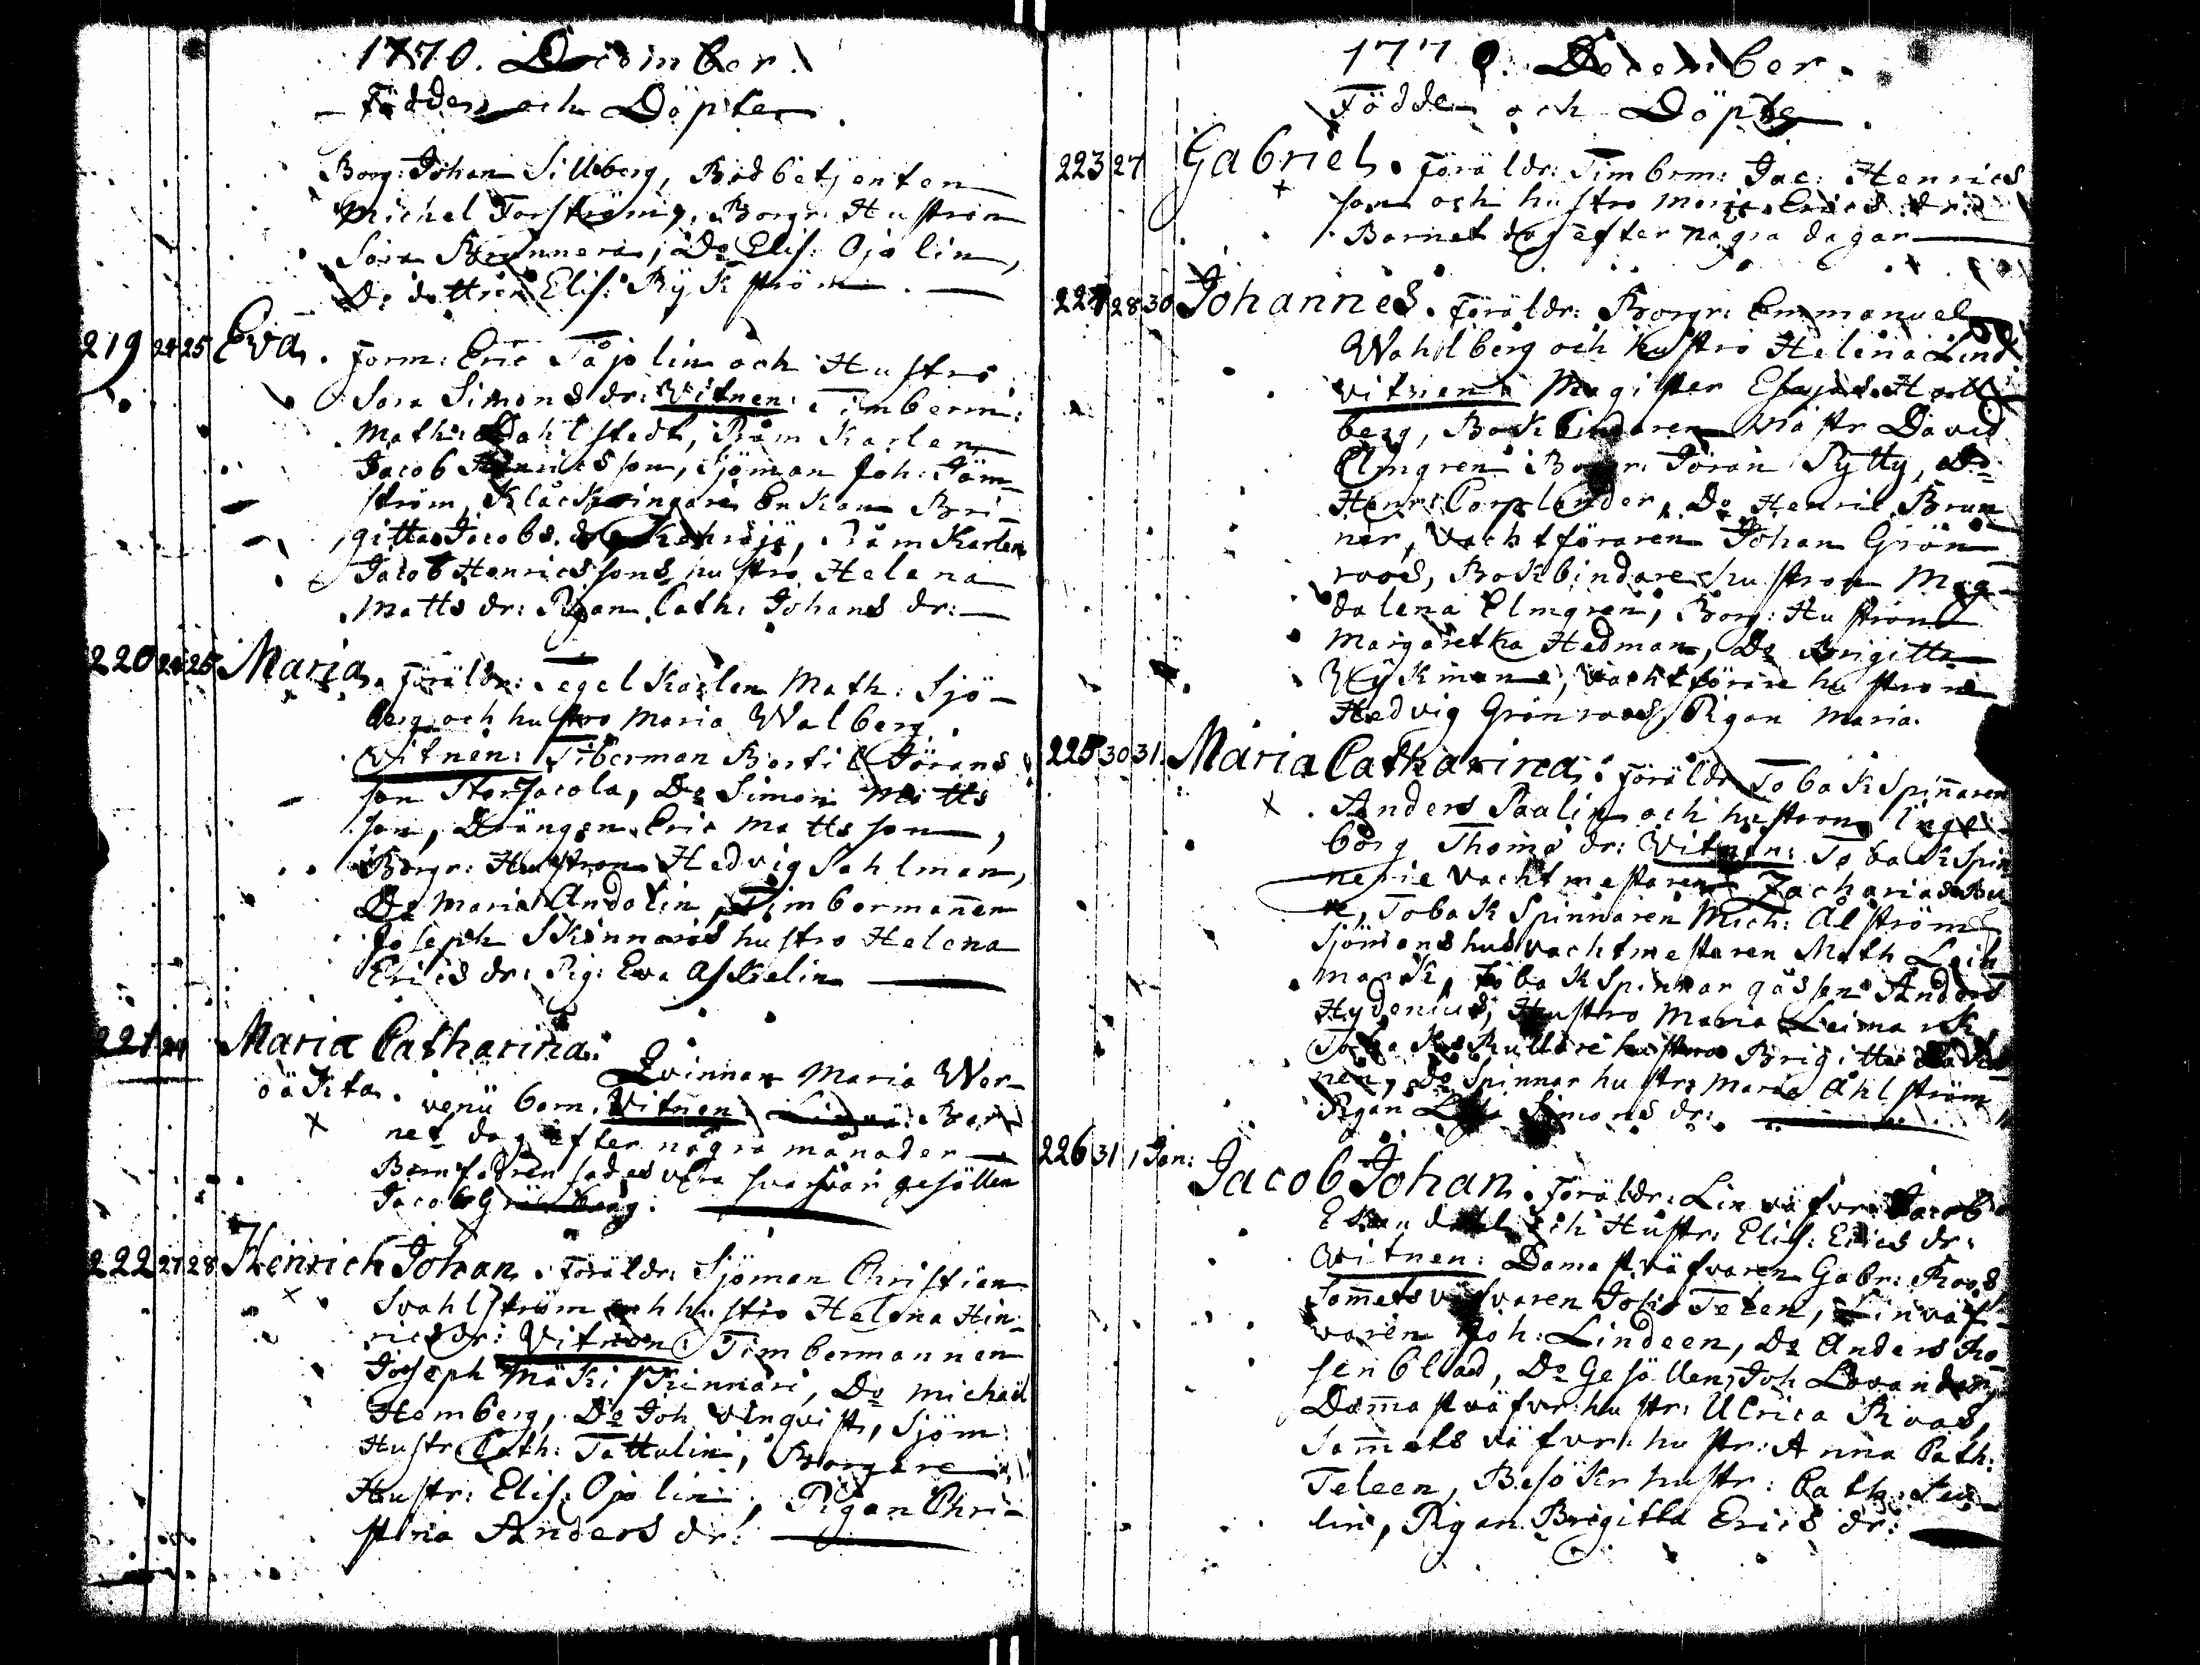 1770. December.
Födde och Döpte
Borg: Johan Silleberg, Bodbetjenten
Michel Forström, Borgr: Hustron
Sara Brunnera, Do Elis: Ojalin,
Do dottren Elis: Rykström.
219 24 25 Eva. Form: Eric Tåjolin och Hustro
Sara Simonsdr: Vitnen: Timberm:
Math: Dahlstedt, Råmkarlen
Jacob Henricsson, Sjöman Joh: Jäm-
ström, Klåckringare Enkan Bri-
gitta Jacobs dr, Råmkarlen
Jacob Henricssons hustro Helena
Mattsdr: Pigan Cath: Johansdr:
220 24 25 Maria. Föräldr: Tegelkarlen Math: Sjö-
berg och hustro Maria Walberg.
Vitnen: Tiberman Bertil Jörans
son Storjacola, Do Simon Matts
son, Drängen Eric Mattsson,
Borgr: Hustron Hedvig Sahlman,
Do Maria Andolin, Timbermañen
Joseph Skinnaris hustro Helena
Ericsdr: Pig: Eva Askelin
221 24 Maria Catharina.
oäkta. Qvinnan Maria Wor-
venü barn. Vitnen: Bar
net dog efter några månader
Barnfadren sades vara svarfvari gesällen
Jacob
222 27 28 Henrich Johan. Föräldr: Sjöman Christian
Svahlström och hustro Helena Hin-
ricsdr: Vitnen: Timbermannen
Joseph Mäki Skinnari, Do Michael
Hemberg, Do Joh: Vinqvist, Sjöm:
Hustr: Cath: Tattulin, Borgare
Hustr: Elis: Ojalin, Pigan Chri-
stina Andersdr:
1770. December.
Födde och Döpte
223 27 Gabriel. Föräldr: Timberm: Jac: Henrics
son och hustro Maria Ericsdr:
Barnet dog efter några dagar
224 28 30 Johannes. Föräldr: Borgr: Emmanuel
Wahlberg och hustro Helena Lind
Vitnen: Magister Esajas Hall
berg, Bokbindaren Mästr David
Elmgren Borgr: Jöran Pytty, Do
Henr: Corplander, Do Henric Brun
ner, Vachtföraren Johan Grön
roos, Bokbindare hustron Mag-
dalena Elmgren, Borg: Hustron
Margaretha Hedman, Do Brigitta
Rykman, Vachtförare hustron
Hedvig Grönroos, Pigan Maria.
225 30 31 Maria Catharina. Föräldr: Tobakspiñaren
Anders Paalin och hustron Inge
borg Thomsdr: Vitnen: Tobakspin
nerie Vachtmestaren Zacharias
Tobakspinnaren Mich: Alström
Sjömanshus vachtmestaren Math Lein
mark, Tobakspinnar gåssen Anders
Hydenius, Hustro Maria Leimark,
Tobaks Rullare hustro Brigitta
nen, Do Spinnar hustro Maria Ahlström
Pigan Simonsdr:
226 31 1 Jan: Jacob Johan. Föräldr: Linväfvr: Jacob
och Hustr: Elis: Ericsdr:
Vitnen: Damastväfvaren Gabr: Roos
Sam̃etsväfvaren Joh: Teleen, Linväf-
varen Joh: Lindeen, Do Anders Ro
senblad, Do Gesällen Joh
Dam̃astväfvr: hustr: Ulrica Roos,
Sam̃etsväfvr: hustr: Anna Cath:
Teleen, Besökr hustr: Cath:
lin, Pigan Brigitta Ericsdr: